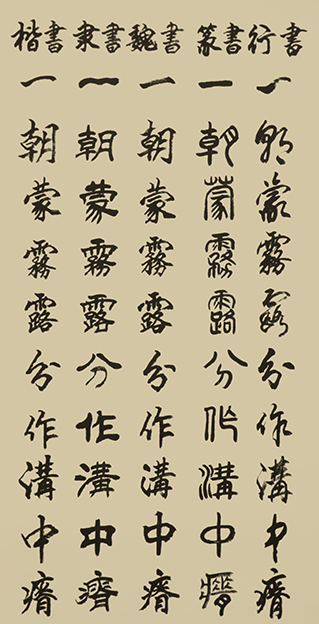 楷書 隶書 魏書 篆書 行書
一 一 一 一 一
朝 朝 朝 朝 朝
蒙 蒙 蒙 蒙 蒙
霧 霧 霧 霧 霧
露 露 露 露 露
分 分 分 分 分
作 作 作 作 作
溝 溝 溝 溝 溝
中 中 中 中 中
瘠 瘠 瘠 瘠 瘠